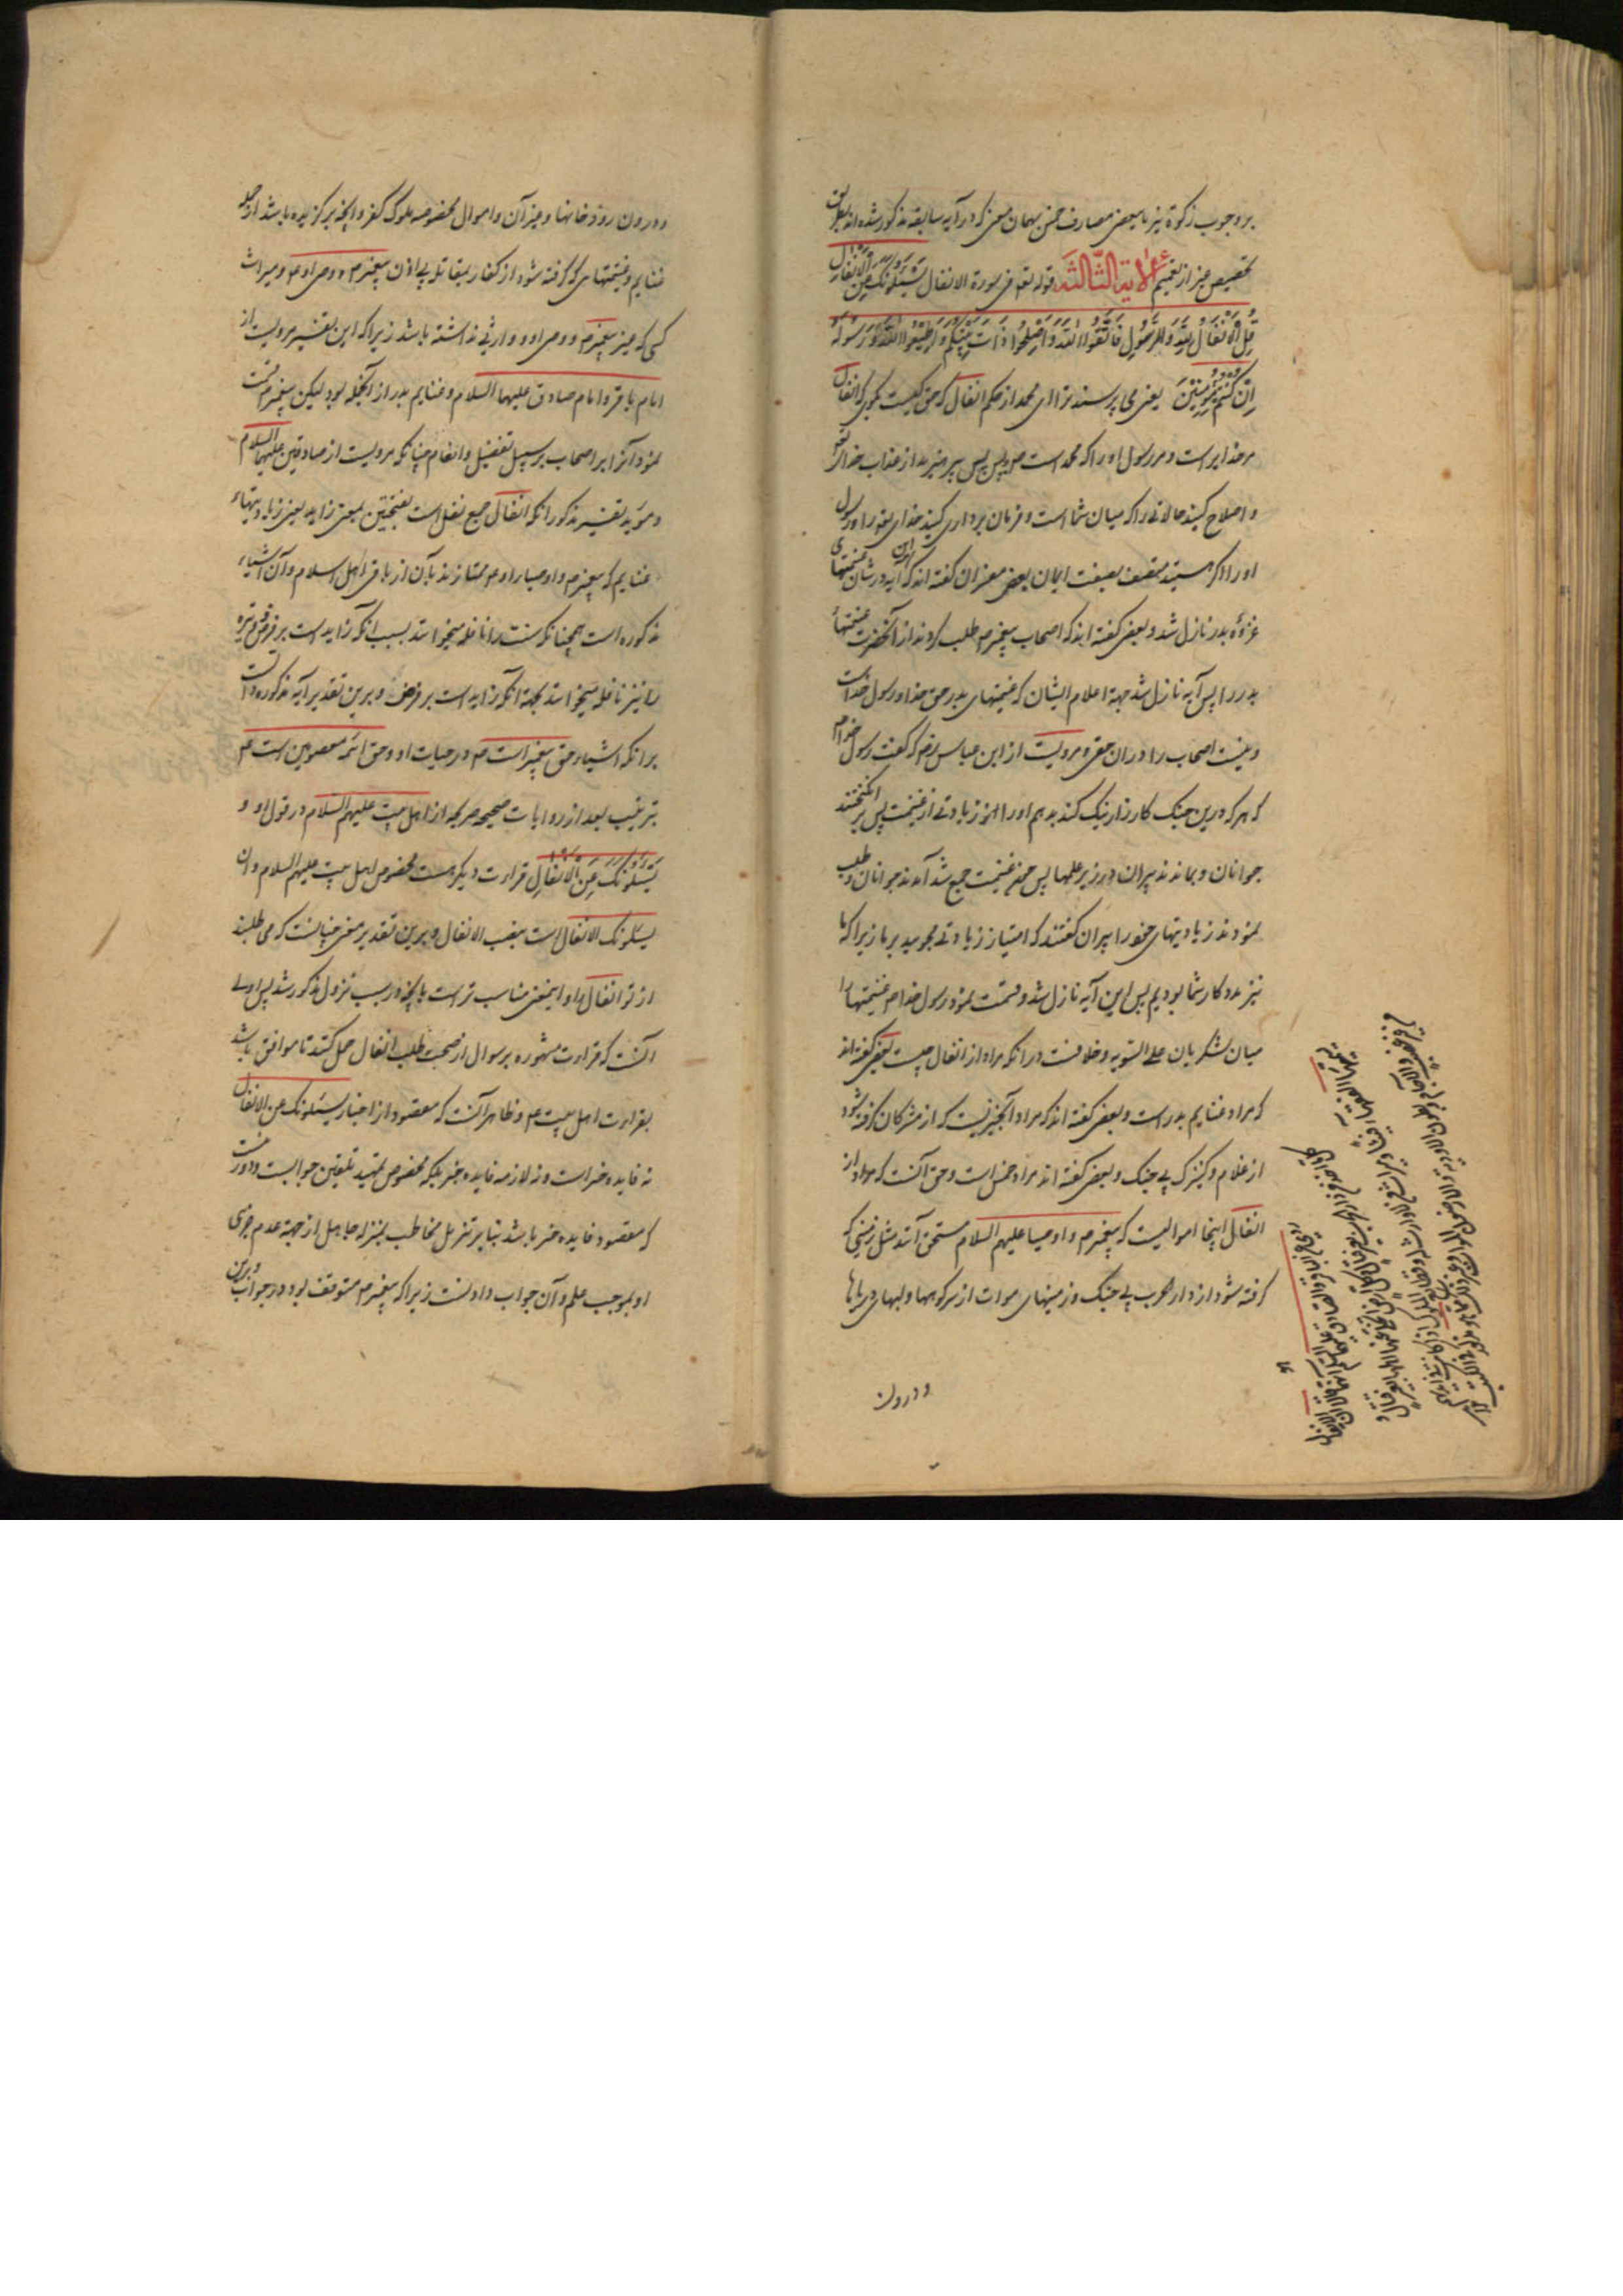 بر وجوب زکوة نیز با بعضی مصارف خمس بهمان معنی که در آیه سابقه مذکور شده اند بطریق
تخصیص غیر از تعمیم الآیة الثالثة قوله تعالی فی سورة الانفال یَسْئَلُونَکَ عَنِ الْاَنْفَالِ
قُلِ الْاَنْفَالُ لِلّٰهِ وَ لِلرَّسُولِ فَاتَّقُوا اللّٰهَ وَ اَصْلِحُوا ذَاتَ بَیْنِکُمْ وَ اَطِیعُوا اللّٰهَ وَ رَسُولَهُ
اِنْ کُنْتُمْ مُؤْمِنِینَ یعنی می پرسند ترا ای محمد از حکم انفال که حق کیست بگوی که انفال
مر خدایراست و مر رسول او را که محمد است ص پس بپرهیزید از عذاب خدای تع
و اصلاح کنید حالاتی را که میان شما است و فرمان برداری کنید خدای تع را و رسول
او را اگر هستید متصف بصفت ایمان بعضی مفسران گفته اند که این آیه در شان غنیمتهای
غزوهٔ بدر نازل شد و بعضی گفته اند که اصحاب پیغمبر ص طلب کردند از آنحضرت غنیمتهای
بدر را پس آیه نازل شد جهة اعلام ایشان که غنیمتهای بدر حق خدا و رسول خداست
و نیست اصحاب را در ان حقی و مرویست از ابن عباس رض که گفت رسول خدا ص
که هر که درین جنک کارزار نیک کند بدهم او را امروز زیادتی از غنیمت پس برانگیختند
جوانان و بماندند پیران در زیر علمها پس چون غنیمت جمع شد آمدند جوانان و طلب
نمودند زیادتیهای خود را پیران گفتند که امتیاز زیادتی مجویید بر ما زیرا که ما
نیز مددکار شما بودیم پس این آیه نازل شد و قسمت نمود رسول خدا ص غنیمتها را
میان لشکریان علی السویه و خلافست در انکه مراد از انفال چیست بعضی گفته اند
که مراد غنایم بدر است و بعضی گفته اند که مراد آنچیزیست که از مشرکان گرفته شود
از غلام و کنیزک بی جنک و بعضی گفته اند مراد خمس است و حق آنست که مراد از
انفال اینجا اموالیست که پیغمبر ص و اوصیا علیهم السلام مستحق آنند مثل زمینی که
گرفته شود از دار الحرب بی جنک و زمینهای موات از سر کوهها و لبهای دریاها
و درون
و درون رودخانها و غیر آن و اموال مخصوصه ملوک کفر و آنچه برگزیده باشد از جمله
غنایم و غنیمتهای که گرفته شود از کفار بمقاتله بی اذن پیغمبر ص و وصی او ع و میراث
کسی که غیر پیغمبر ص و وصی او ع وارثی نداشته باشد زیرا که این تفسیر مرویست از
امام باقر و امام صادق علیهما السلام و غنایم بدر از آنجمله بود لیکن پیغمبر ص قسمت
نمود آنرا بر اصحاب بر سبیل تفضیل و انعام چنانکه مرویست از صادقین علیهما السلام
و مؤید تفسیر مذکور انکه انفال جمع نفل است بفتحتین بمعنی زاید یعنی زیادتیهاء
غنایم که پیغمبر ص و اوصیاء او ع ممتازند بآن از باقی اهل اسلام و آن اشیاء
مذکوره است همچنانکه سنت را نافله میخوانند بسبب انکه زاید است بر فرض و نبیره
را نیز نافله میخوانند بجهة انکه زاید است بر فرض و برین تقدیر آیه مذکوره دالست
بر انکه اشیاء حق پیغمبر است ص در حیات او و حق ائمه معصومین است ع
بترتیب بعد از روایات صحیحه صریحه از اهل بیت علیهم السلام در قول او و
یَسْئَلُونَکَ عَنِ الْاَنْفَالِ قراءت دیگر هست مخصوص اهل بیت علیهم السلام و ان
یسئلونک الانفال است بنصب الانفال و برین تقدیر معنی چنانست که می طلبند
از تو انفال را و اینمعنی مناسب تر است بآنچه در سبب نزول مذکور شد پس اولی
آنست که قراءت مشهوره بر سوال از صحت طلب انفال حمل کنند تا موافق باشد
بقراءت اهل بیت ع و ظاهر آنست که مقصود از اخبار یسئلونک عن الانفال
نه فایده خبر است و نه لازمه فایده خبر بلکه مخصوص تمهید تلقین جوابست و دور نیست
که مقصود فایده خبر باشد بنابر تنزیل مخاطب بمنزله جاهل از جهة عدم جری
او بموجب علم و آن جواب دادنست زیرا که پیغمبر ص متوقف بود در جواب و برین